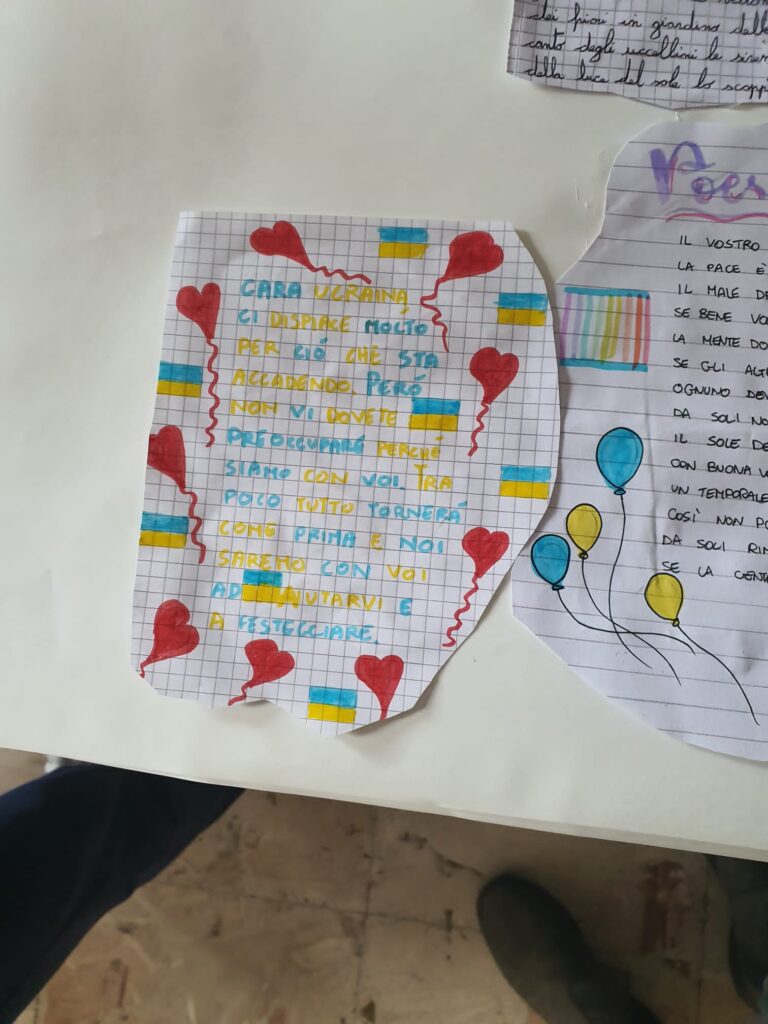 dei fiori in giardino
canto degli uccellini le
della luce del sole lo
CARA UCRAINA,
CI DISPIACE MOLTO
PER CIÓ CHE STA
ACCADENDO. PERÓ
NON VI DOVETE
PREOCCUPARE PERCHÉ
SIAMO CON VOI. TRA
POCO TUTTO TORNERÁ
COME PRIMA E NOI
SAREMO CON VOI
AD AIUTARVI E
A FESTEGGIARE.
IL VOSTRO
LA PACE È
IL MALE
SE BENE
LA MENTE
SE GLI
OGNUNO
DA SOLI
IL SOLE
CON BUONA
UN TEMPORALE
COSÌ NON
DA SOLI
SE LA